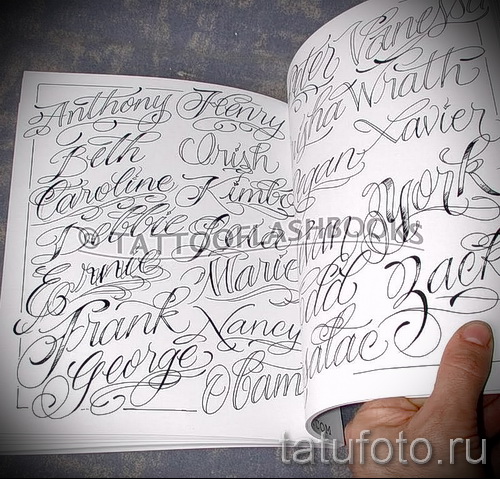 Anthony Henry
Beth Orish
Caroline Kimbo
Debbie Lona
Ernie Marie
Frank Nancy
George Obam
Vanessa
Wrath
Xavier
York
Zack
© TATTOOFLASHBOOKS
.COM
tatufoto.ru